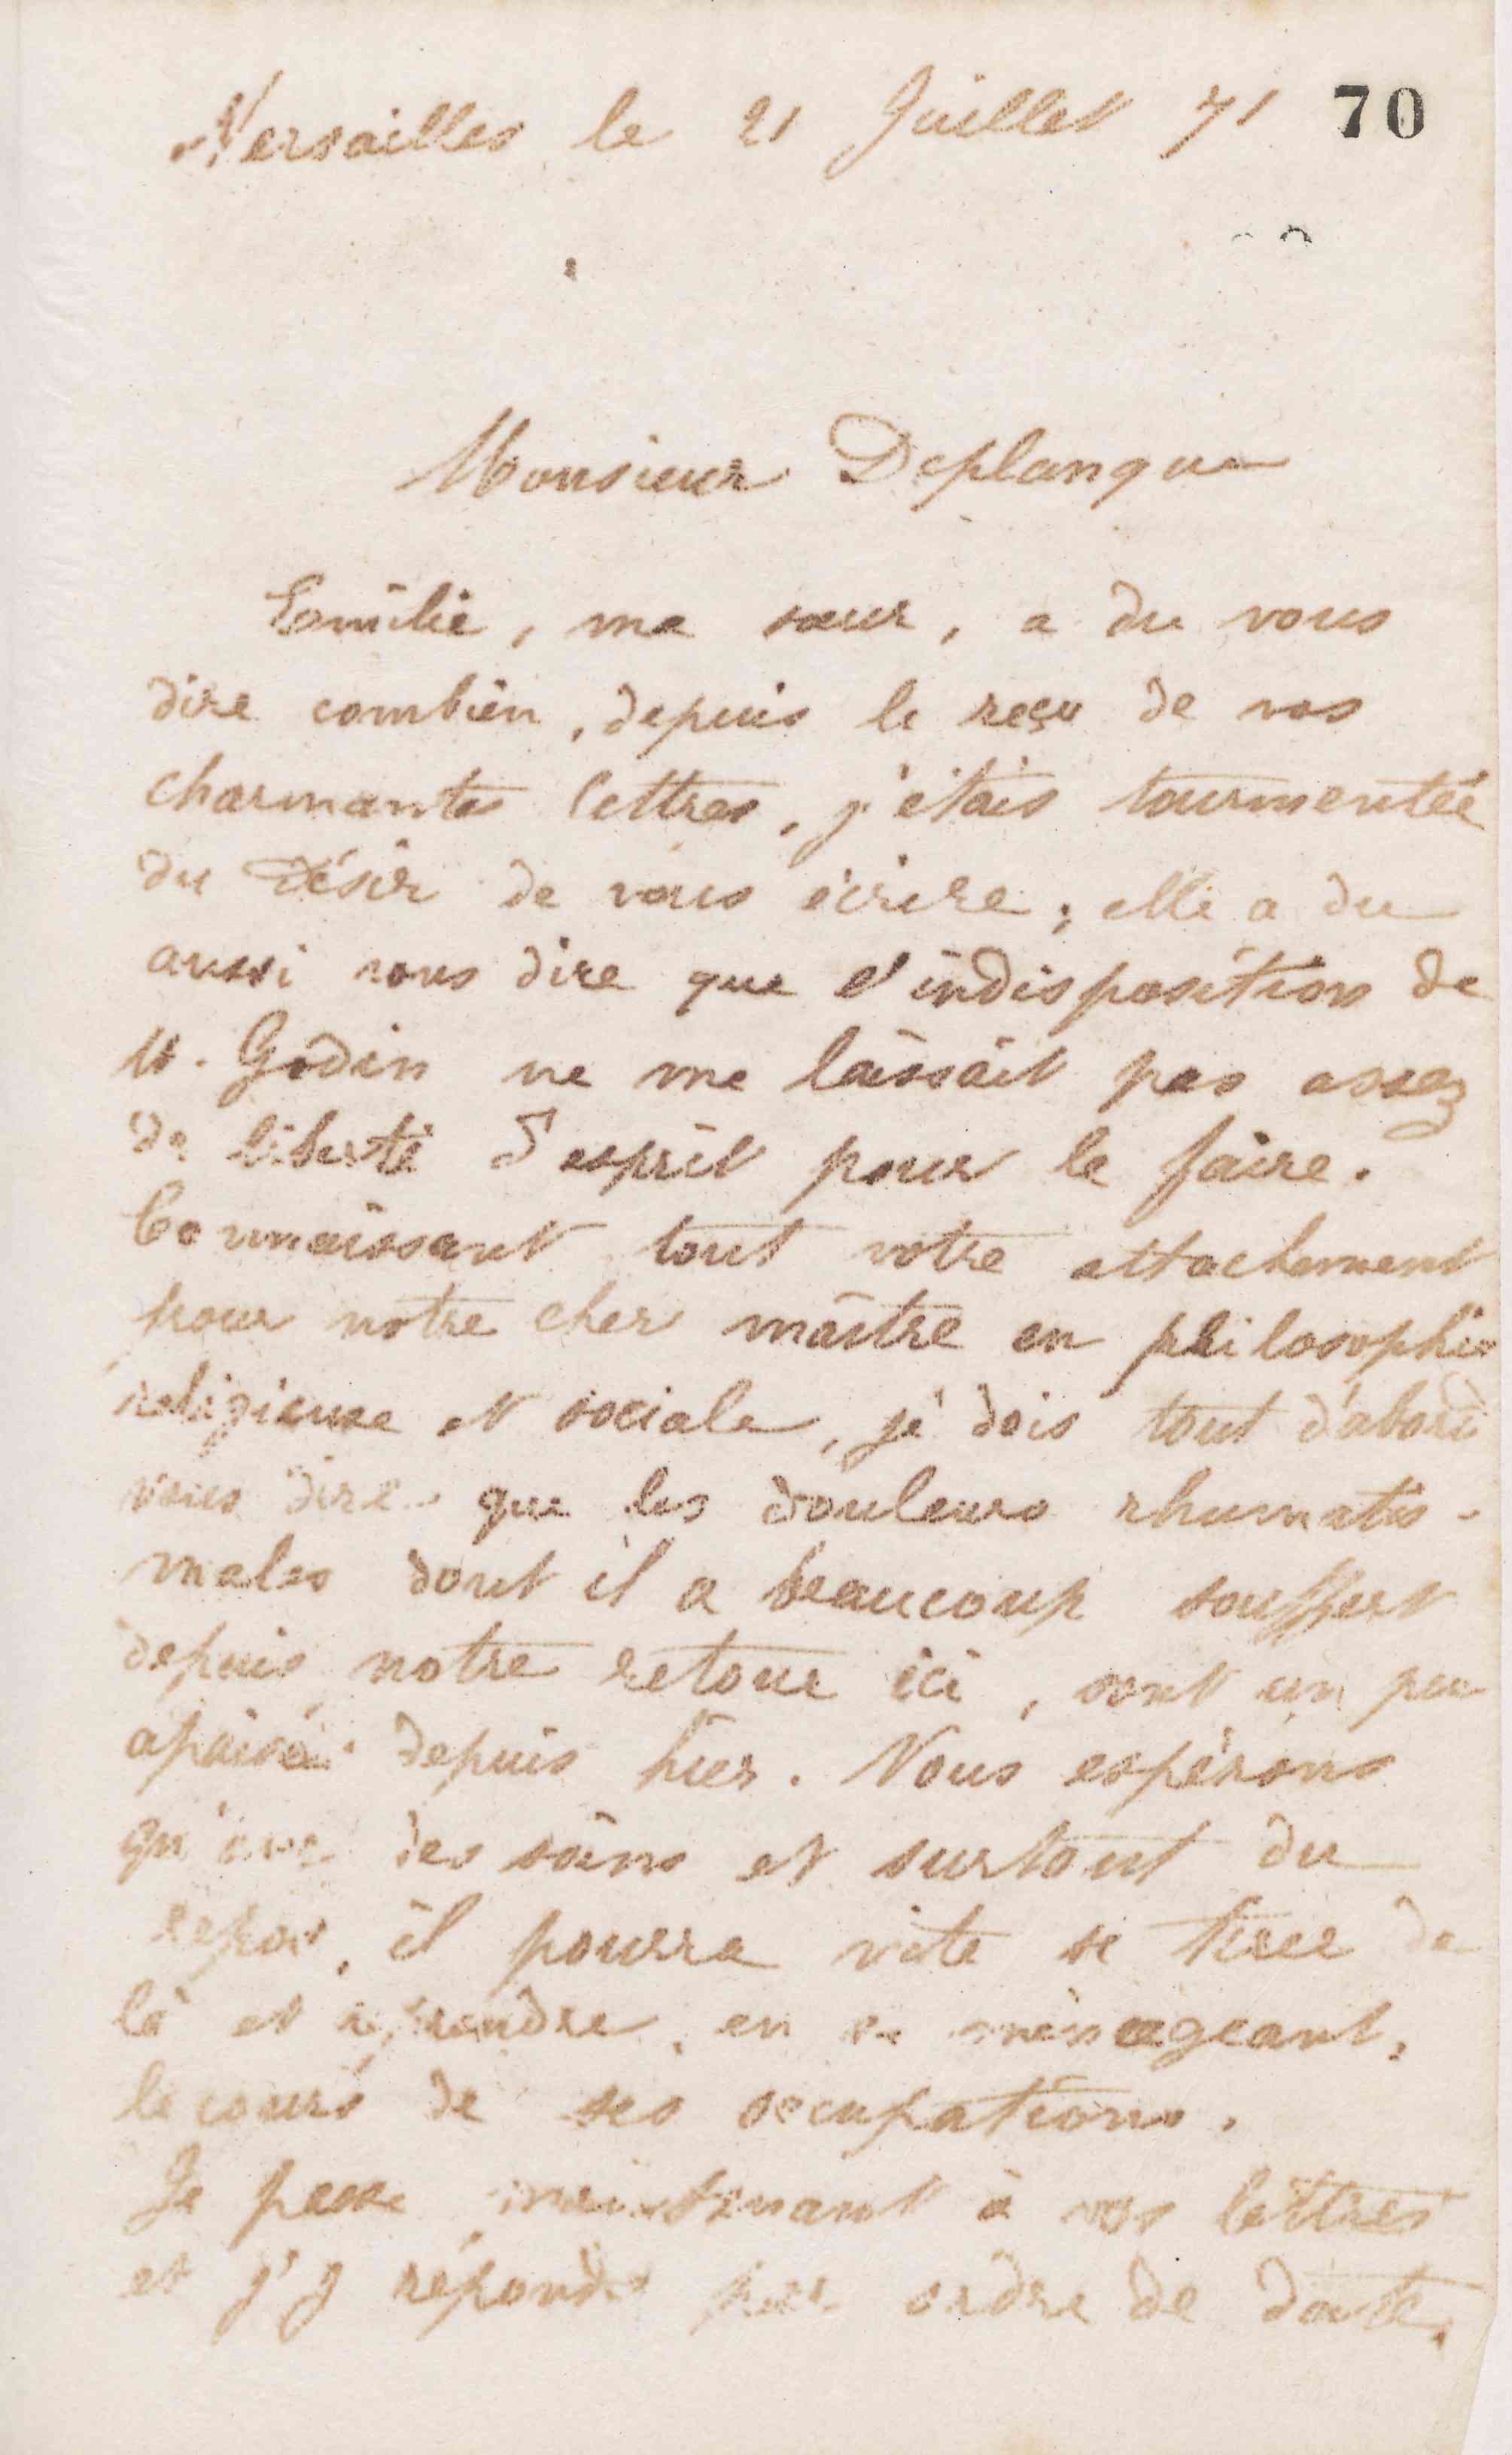 Versailles le 21 Juillet 71 70
Monsieur Deplanque
Emilie, ma sœur, a du vous
dire combien, depuis le reçu de vos
charmantes lettres, j'étais tourmentée
du désir de vous écrire ; elle a du
aussi vous dire que l'indisposition de
M. Godin ne me laissait pas assez
de liberté d'esprit pour le faire.
Connaissant tout votre attachement
pour notre cher maître en philosophie
religieuse et sociale, je dois tout d'abord
vous dire que les douleurs rhumatis-
males dont il a beaucoup souffert
depuis notre retour ici, sont un peu
apaisées depuis hier. Nous espérons
qu'avec des soins et surtout du
repos, il pourra vite se tirer de
là et reprendre, en se ménageant,
le cours de ses occupations.
Je passe maintenant à vos lettres
et j'y réponds par ordre de date.